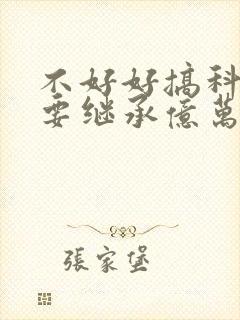 不好好搞科
要继承億萬
張家堡